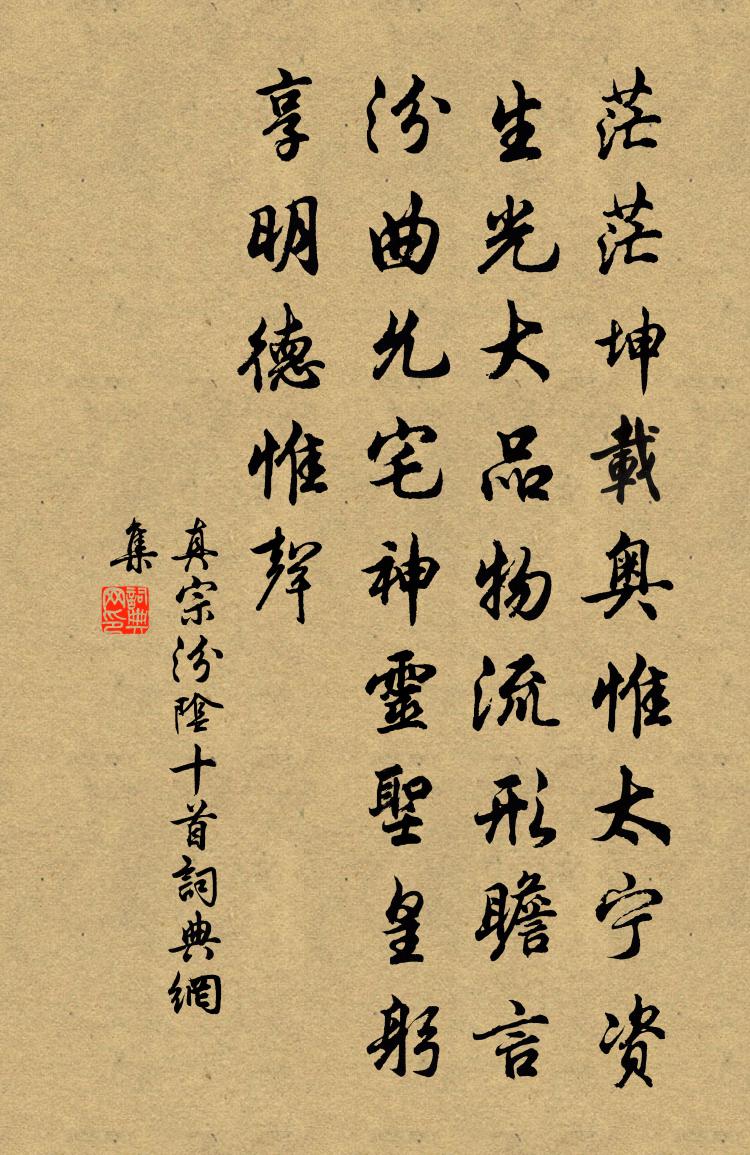 茫茫坤載奧惟太宁资
生光大品物流形瞻言
汾曲允宅神靈聖皇躬
享明德惟聲
真宗汾陰十首詞典網
集
詞典
网印